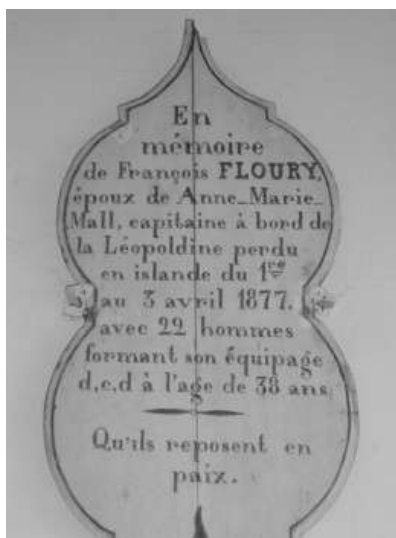 En
mémoire
de François FLOURY,
époux de Anne-Marie-
Mall, capitaine à bord de
la Léopoldine perdu
en islande du 1re
au 3 avril 1877.
avec 22 hommes
formant son équipage
d,c,d à l'age de 38 ans
Qu'ils reposent en
paix.